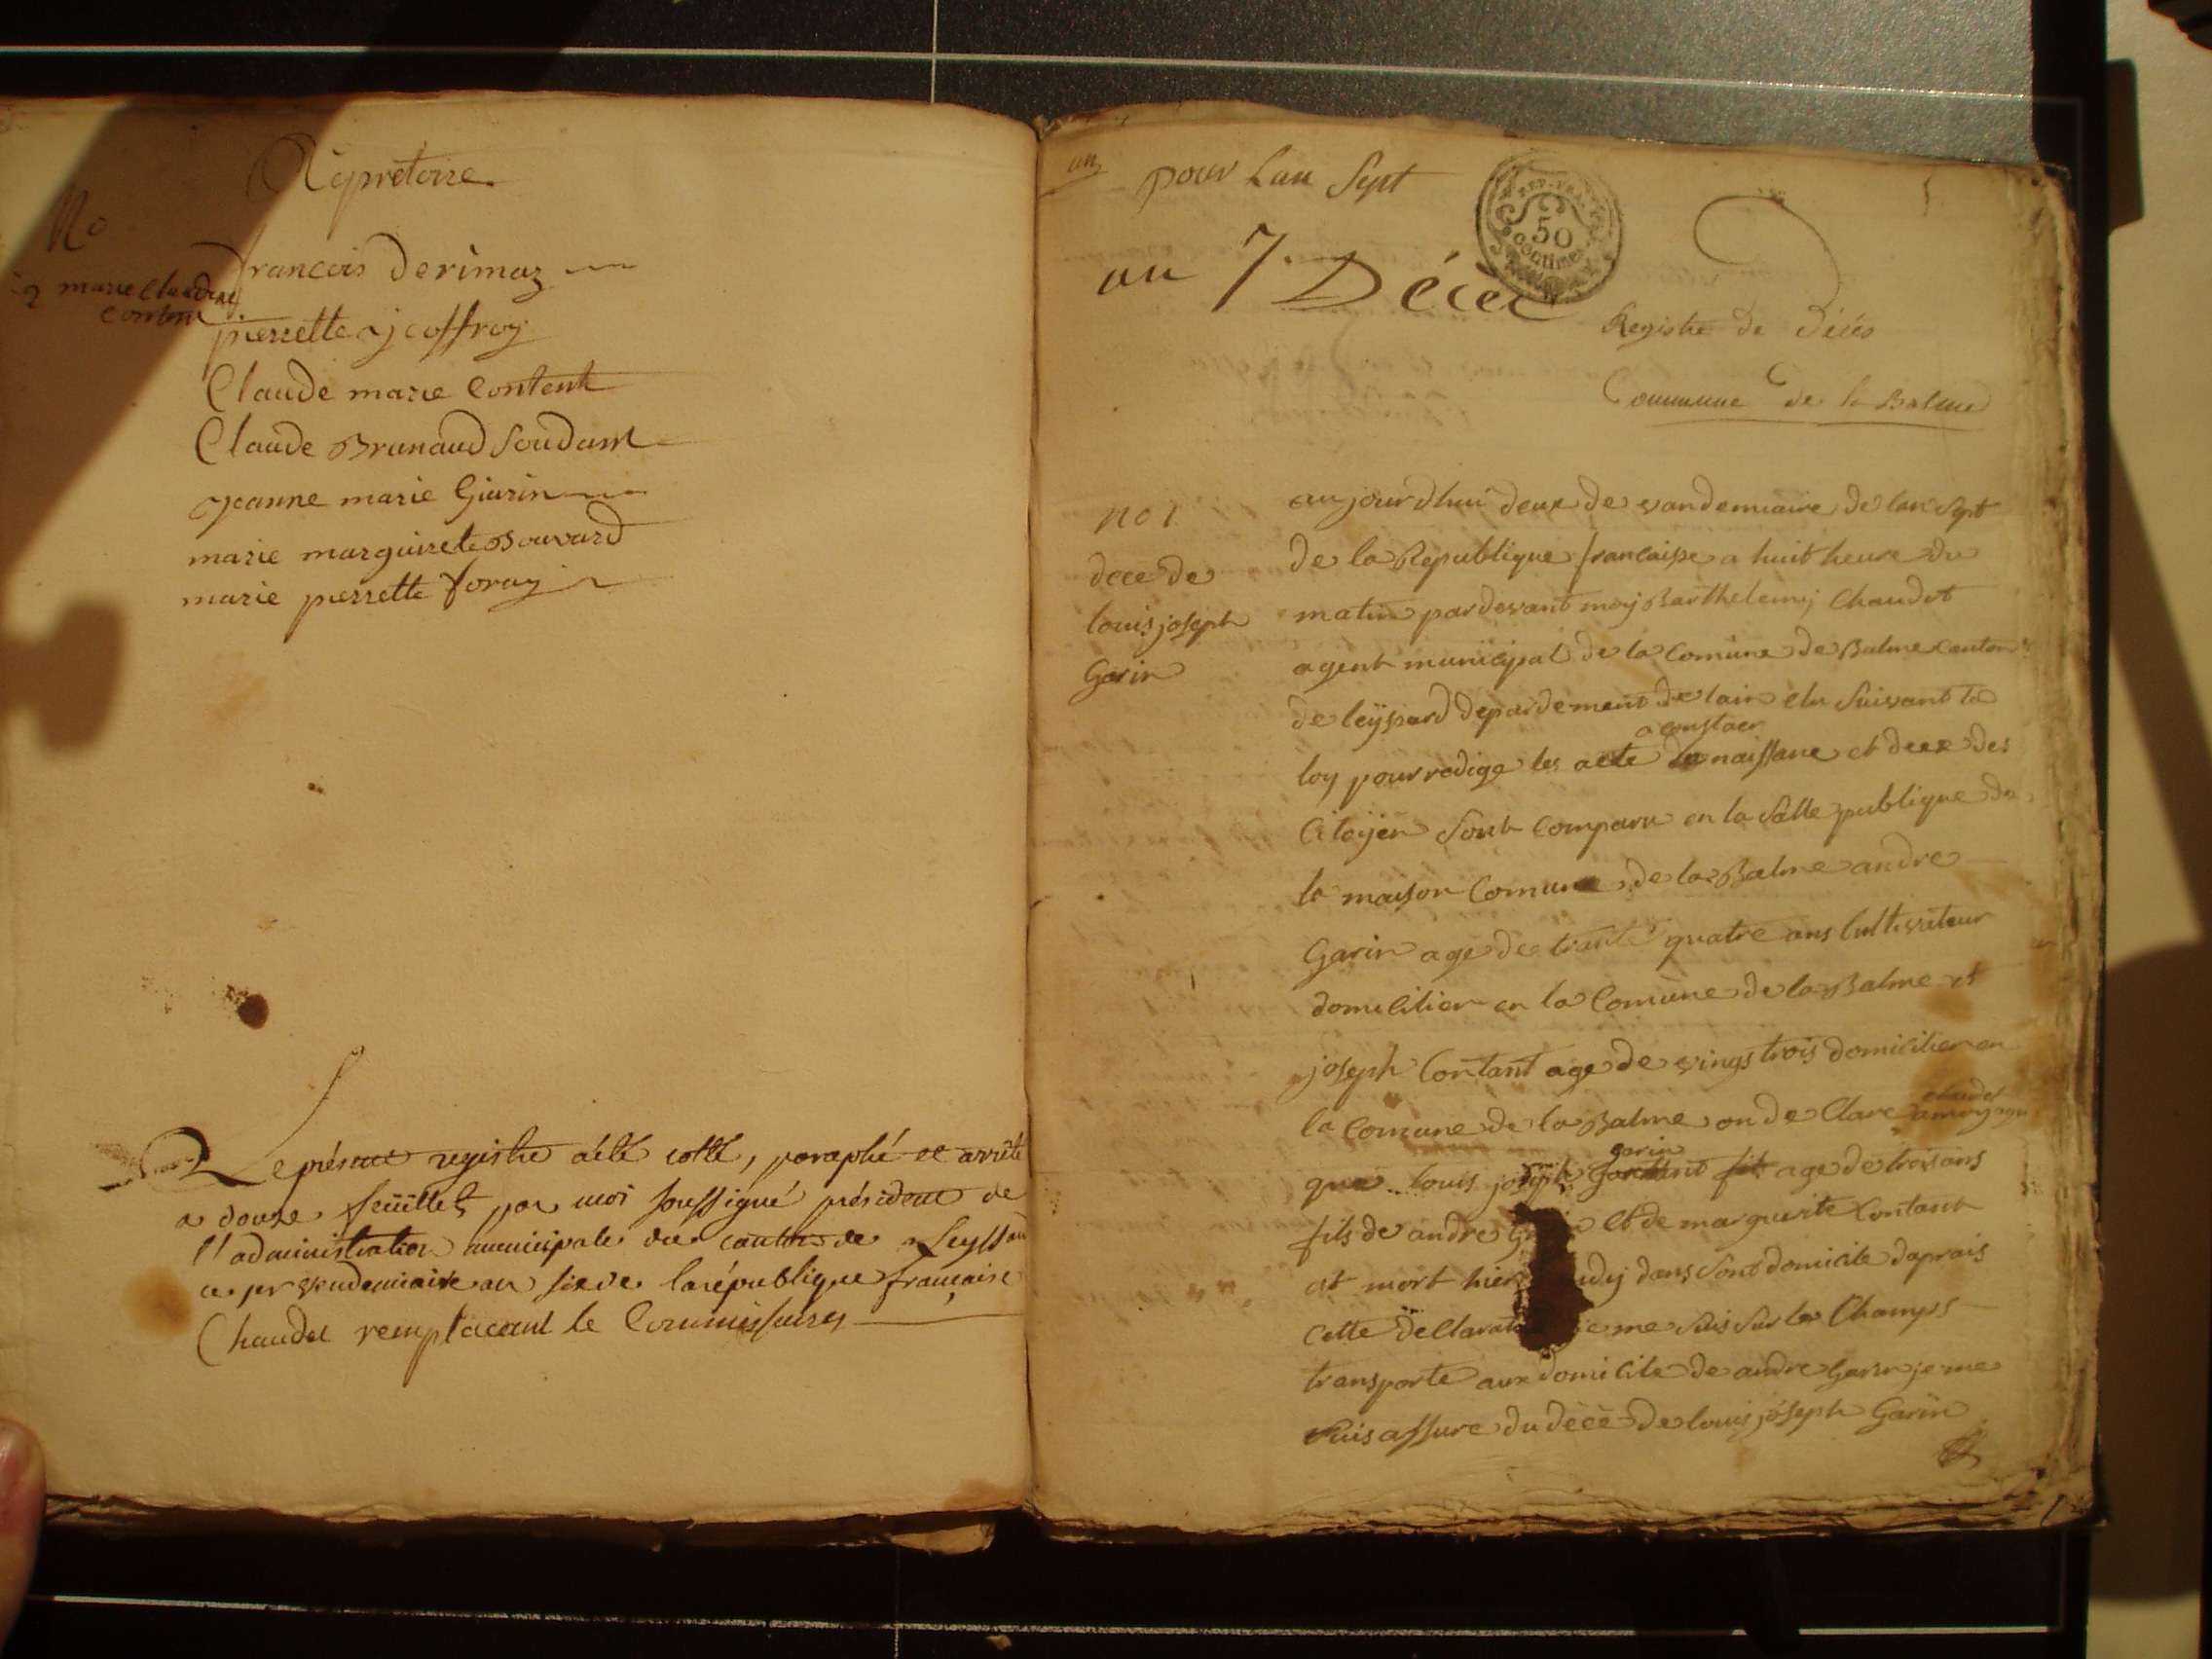 Répretoire
No
francois Derimaz
2 marie Claudine
Content
pierrette jeoffroy
Claude marie Content
Claude Brunaud Soudam
jeanne marie Giarin
marie marguirete Bouvard
marie pierrette foray
Le présent registre a été cotté, paraphé et arrêté
a douze feüillets par moi soussigné président de
l'administration municipale du canton de Leyssard
ce 1er vendemiaire an sixe de la république francaise
Chaudet remplacant le Commissaires
un
pour Lan Sept
REP. FRA.
50
centimes
an 7. Décec
Registre de Décés
Commune de la Balme
no 1
dece de
louis joseph
Garin
aujourdhui deux de vandemiaire de lan Sept
de la Republique francaisse a huit heure du
matin pardevant moy Barthelemy Chaudet
agent municipal de la Comune de Balme canton
de leyssard depardement de lain elu Suivant la
a constaer
loy pour redige les acte de naissance et deee des
Citoyen Sont Comparu en la Salle publique de
la maison Comune de la Balme andre
Garin age de trante quatre ans Cultivateur
domicilier en la Comune de la Balme et
joseph Contant age de vingt trois domicilier en
chaudet
la Comune de la Balme on de Clare a moy
garin
que louis joseph fit age de trois ans
fils de andre et de marguerite Contant
at mort hier dans Sont domicile daprais
Cette deClarat je me Suis Sur les Champs
transporte aux domicile de andre Garin je me
Suis assure du décè de louis joseph Garin